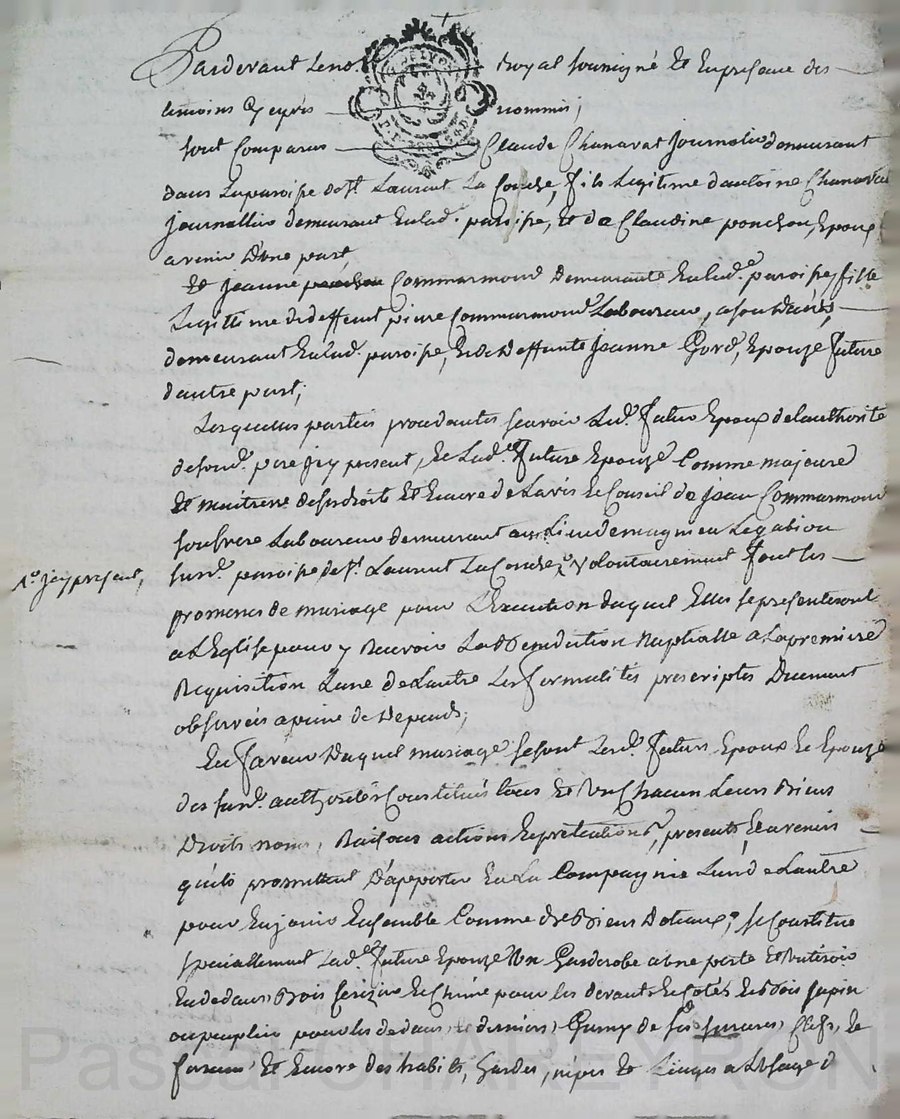 Pardevant le no Royal soussigné Et en presence des
temoins Cy aprés nommés;
sont Comparus Claude Chanavat Journalier demeurant
dans la paroisse de St. Laurent La Conche, fils Legitime d'antoine Chanavat
journallier demeurant Enlad. paroisse, Et de Claudine ponchon, Epoux
avenir D'une part,
Et jeanne Commarmond Demeurante Enlad.e paroisse, fille
Legittime de deffunt pierre Commarmond Laboureur,
demeurant Enlad. paroisse, Et de Deffunte jeanne Epouze future
d'autre part;
Lesquelles parties procedantes scavoir Led. futur Epoux de l'authorité
de sond. pere jcy present, Et Lad.e future Epouze Comme majeure
Et maitresse de ses droits Et Encore de L'avis Et Conseil de jean Commarmond
son frere Laboureur demeurant au Lieu de magnieu
susd. paroisse de St. Laurent La Conche, volontairement font les
1.o jcy present,
promesses de mariage pour L'Execution duquel Elles se presenteront
a L'Eglise pour y Recevoir La Benediction Nuptialle a La premiere
Requisition L'une de L'autre Les formalités prescriptes Duement
observées a peine de Depends;
En faveur Duquel mariage se sont Lesd. futurs Epoux Et Epouze
des susd. authorités Constitués tous Et Un Chacun Leurs Biens
Droits noms, Raisons actions Et pretentions, presents Et avenirs
qu'ils promettent D'apporter En La Compagnie L'un de L'autre
pour En jouir Ensemble Comme de Biens Dotaux, se Constitue
specialement Lad.e future Epouze Un Garderobe a une porte Et Un tiroir
En dedans, Bois Cerizier Et Chêne pour les devants Et Cotés Et Bois sapin
ou peuplier pour les dedans, Et derniers, Garny de ses serrures, Clefs, Et
ferrures Et Encore des habits, Hardes, nipes Et Linges a L'usage d
Pascal CHAPEYRON